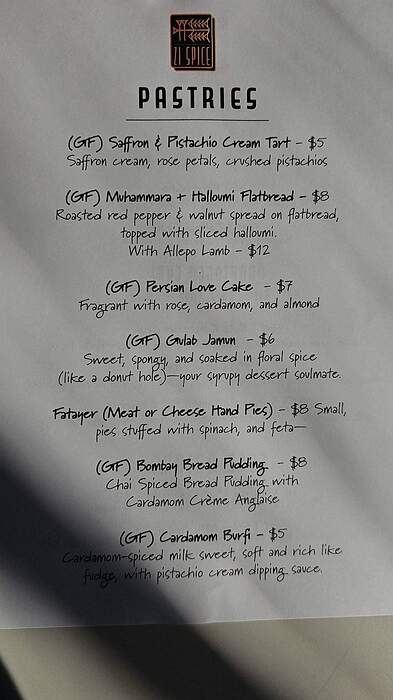 21 SPICE
PASTRIES
(GF) Saffron & Pistachio Cream Tart - $5
Saffron cream, rose petals, crushed pistachios
(GF) Muhammara + Halloumi Flatbread - $8
Roasted red pepper & walnut spread on flatbread,
topped with sliced halloumi.
With Allepo Lamb - $12
(GF) Persian Love Cake - $7
Fragrant with rose, cardamom, and almond
(GF) Gulab Jamun - $6
Sweet, spongy, and soaked in floral spice
(like a donut hole)—your syrupy dessert soulmate.
Fatayer (Meat or Cheese Hand Pies) - $8 Small,
pies stuffed with spinach, and feta—
(GF) Bombay Bread Pudding - $8
Chai Spiced Bread Pudding with
Cardamom Crème Anglaise
(GF) Cardamom Burfi - $5
Cardamom-spiced milk sweet, soft and rich like
fudge, with pistachio cream dipping sauce.